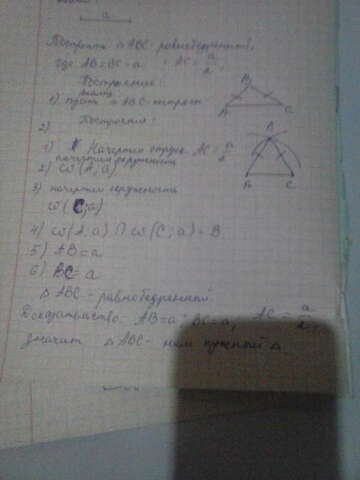 a
Построить △ ABC - равнобедренный,
где AB=BC=a, AC=a/2,
B
A C
1) пусть △ ABC -
Построение:
2)
1) Начертим отрез. AC = a/2
2) начертим окружность
ω(A; a)
3) начертим окружность
ω(C; a)
B
A C
4) ω(A, a) ∩ ω(C; a) = B
5) AB = a
6) BC = a
△ ABC - равнобедренной
Доказательство: AB=a, BC=a, AC = a/2,
значит △ ABC - нам нужный △